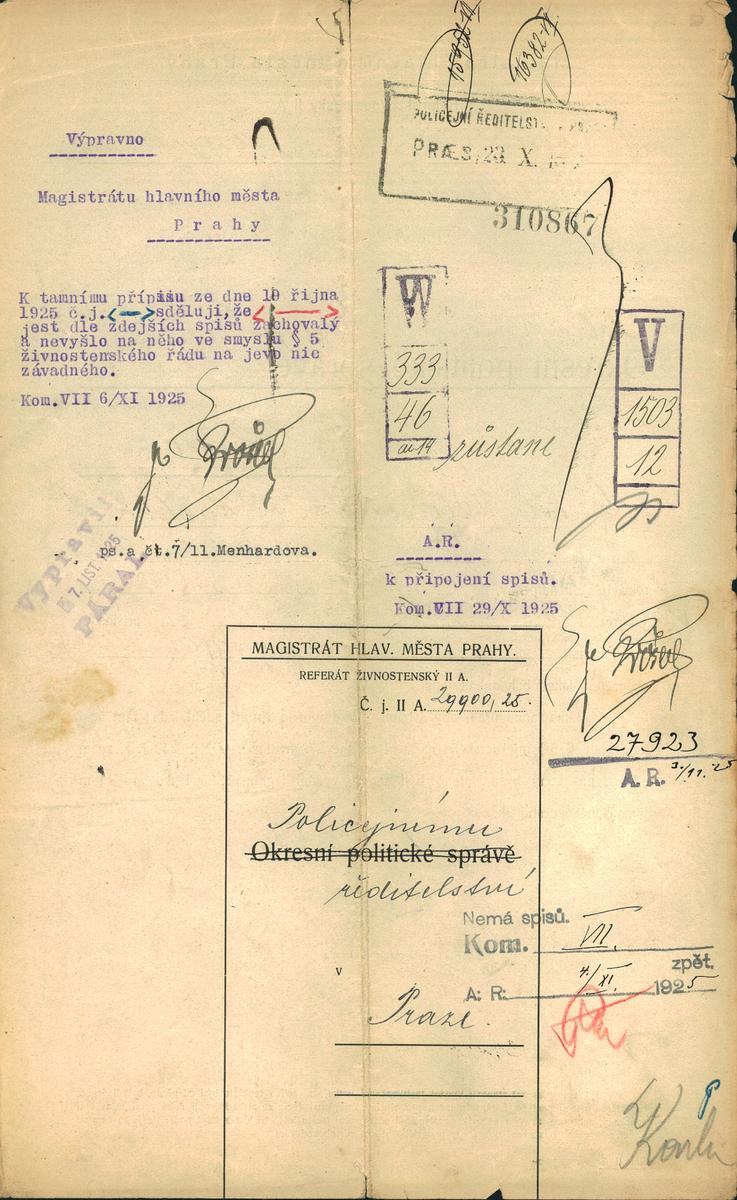 15932-VII
16382-VII
POLICEJNÍ ŘEDITELST
PRÆS. 23 X.
310867
Výpravno
Magistrátu hlavního města
Prahy
K tamnímu přípisu ze dne 19 října
1925 č.j. <--> sděluji, že <-->
jest dle zdejších spisů zachovalý
a nevyšlo na něho ve smyslu § 5
živnostenského řádu na jevo nic
závadného.
Kom.VII 6/XI 1925
W
333
46
ai 14
zůstane
V
1503
12
Vypravil:
7. LIST. 1925
PÁRAL
ps.a čt.7/11.Menhardova.
A.R.
k připojení spisů.
Kom.VII 29/X 1925
27923
A.R. 3/11.25
MAGISTRÁT HLAV. MĚSTA PRAHY.
REFERÁT ŽIVNOSTENSKÝ II A.
Č. j. II A. 29900, 25.
Policejnímu
Okresní politické správě
ředitelství
Nemá spisů.
Kom. VII.
zpět.
A: R: 4/XI. 1925
v
Praze.